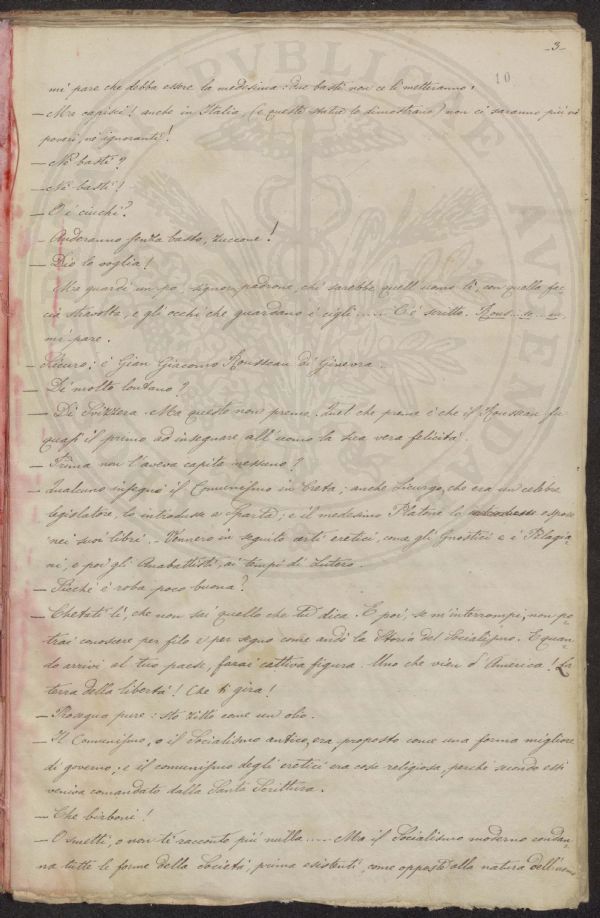 -3-
10
mi pare che debba essere la medesima: due basti non ce li metteranno.
— Ma capisci! anche in Italia, (e queste statue lo dimostrano) non ci saranno più nè
poveri, nè ignoranti!
— Nè basti?
— Nè basti!
— O i ciuchi?
— Anderanno senza basto, zuccone!
— Dio lo voglia!
Ma guardi un po', signor padrone, chi sarebbe quell'uomo lì con quella fac-
cia stravolta, e gli occhi che guardano i cigli ..... C'è scritto. Rous...so...u...
mi pare.
— Sicuro; è Gian Giacomo Rousseau di Ginevra.
— Di molto lontano?
— Di Svizzera. Ma questo non preme. Quel che preme è che il Rousseau fu
quasi il primo ad insegnare all'uomo la sua vera felicità.
— Prima non l'aveva capita nessuno?
— Qualcuno insegnò il Comunismo in Creta; anche Licurgo, che era un celebre
legislatore, lo introdusse a Sparta; e il medesimo Platone lo espose
nei suoi libri. Vennero in seguito certi eretici, come gli Gnostici e i Pelagia-
ni, e poi gli Anabattisti, ai tempi di Lutero.
— Sicchè è roba poco buona?
— Chetati lì, che non sai quello che tu dica. E poi, se m'interrompi, non po-
trai conoscere per filo e per segno come andò la Storia del Socialismo. E quan-
do arrivi al tuo paese, farai cattiva figura. Uno che vien d'America! La
terra della libertà! Che ti gira!
— Prosegua pure: sto zitto come un olio.
— Il Comunismo, o il Socialismo antico, era proposto come una forma migliore
di governo, e il comunismo degli eretici era cosa religiosa, perchè secondo essi
veniva comandato dalla Santa Scrittura.
— Che birboni!
— O smetti, o non ti racconto più nulla ..... Ma il Socialismo moderno condan-
na tutte le forme della Società, prima esistenti, come opposte alla natura dell'uomo